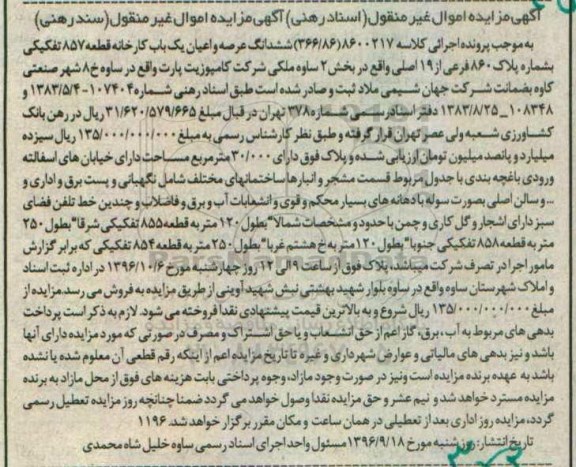 آگهی مزایده اموال غیر منقول (اسناد رهنی) آگهی مزایده اموال غیر منقول (سند رهنی)
به موجب پرونده اجرائی کلاسه ۸۶۰۰۲۱۷ (۳۶۶/۸۶) ششدانگ عرصه و اعیان یک باب کارخانه قطعه ۸۵۷ تفکیکی
بشماره پلاک ۸۶۰ فرعی از ۱۹ اصلی واقع در بخش ۲ ساوه ملکی شرکت کامپوزیت پارت واقع در ساوه خ ۸ شهر صنعتی
کاوه بضمانت شرکت جهان شیمی ملاد ثبت و صادر شده است طبق اسناد رهنی شماره ۱۰۷۴۰۴-۱۳۸۳/۵/۴ و
۱۰۸۳۴۸ _ ۱۳۸۳/۸/۲۵ دفتر اسناد رسمی شماره ۳۷۸ تهران در قبال مبلغ ۳۱/۶۲۰/۵۷۹/۶۶۵ ریال در رهن بانک
کشاورزی شعبه ولی عصر تهران قرار گرفته و طبق نظر کارشناس رسمی به مبلغ ۱۳۵/۰۰۰/۰۰۰/۰۰۰ ریال سیزده
میلیارد و پانصد میلیون تومان ارزیابی شده و پلاک فوق دارای ۳۰/۰۰۰ متر مربع مساحت دارای خیابان های اسفالته
ورودی باغچه بندی با جدول مربوط قسمت مشجر و انبارها ساختمانهای مختلف شامل نگهبانی و پست برق و اداری و
... و سالن اصلی بصورت سوله با دهانه های بسیار محکم و قوی و انشعابات آب و برق و فاضلاب و چندین خط تلفن فضای
سبز دارای اشجار و گل کاری و چمن با حدود و مشخصات شمالا" بطول ۱۲۰ متر به قطعه ۸۵۵ تفکیکی شرقا" بطول ۲۵۰
متر به قطعه ۸۵۸ تفکیکی جنوبا" بطول ۱۲۰ متر به خ هشتم غربا" بطول ۲۵۰ متر به قطعه ۸۵۴ تفکیکی که برابر گزارش
مامور اجرا در تصرف شرکت میباشد، پلاک فوق از ساعت ۹ الی ۱۲ روز چهار شنبه مورخ ۱۳۹۶/۱۰/۶ در اداره ثبت اسناد
و املاک شهرستان ساوه واقع در ساوه بلوار شهید بهشتی نبش شهید آوینی از طریق مزایده به فروش می رسد. مزایده از
مبلغ ۱۳۵/۰۰۰/۰۰۰/۰۰۰ ریال شروع و به بالاترین قیمت پیشنهادی نقدا فروخته می شود. لازم به ذکر است پرداخت
بدهی های مربوط به آب، برق، گاز اعم از حق انشعاب و یا حق اشتراک و مصرف در صورتی که مورد مزایده دارای آنها
باشد و نیز بدهی های مالیاتی و عوارض شهرداری و غیره تا تاریخ مزایده اعم از اینکه رقم قطعی آن معلوم شده یا نشده
باشد به عهده برنده مزایده است ونیز در صورت وجود مازاد، وجوه پرداختی بابت هزینه های فوق از محل مازاد به برنده
مزایده مسترد خواهد شد و نیم عشر و حق مزایده نقدا وصول خواهد می گردد ضمنا چنانچه روز مزایده تعطیل رسمی
گردد، مزایده روز اداری بعد از تعطیلی در همان ساعت و مکان مقرر برگزار خواهد شد. ۱۱۹۶
تاریخ انتشار: روز شنبه مورخ ۱۳۹۶/۹/۱۸ مسئول واحد اجرای اسناد رسمی ساوه خلیل شاه محمدی